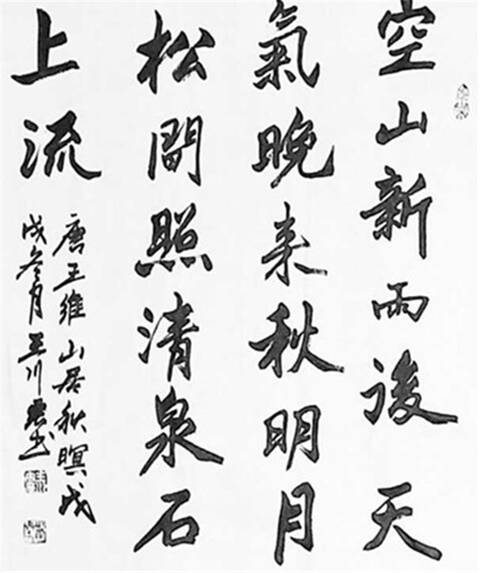 空山新雨後天
氣晚来秋明月
松間照清泉石
上流
唐王維山居秋暝戊
戌冬月王川